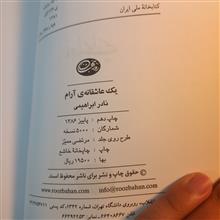 کتابخانهٔ ملی ایران
یک عاشقانه‌ی آرام
نادر ابراهیمی
چاپ دهم : پاییز ۱۳۸۶
شمارگان : ۵۰۰۰ نسخه
طرح روی جلد : مرتضی ممیز
چاپ : چاپخانهٔ خاشع
بها : ۱۹۵۰۰ ریال
© حقوق چاپ و نشر برای ناشر محفوظ است.
info@roozbahan.com
www.roozbahan.com
دانشگاه تهران، شماره ۱۳۴۲، کد پستی